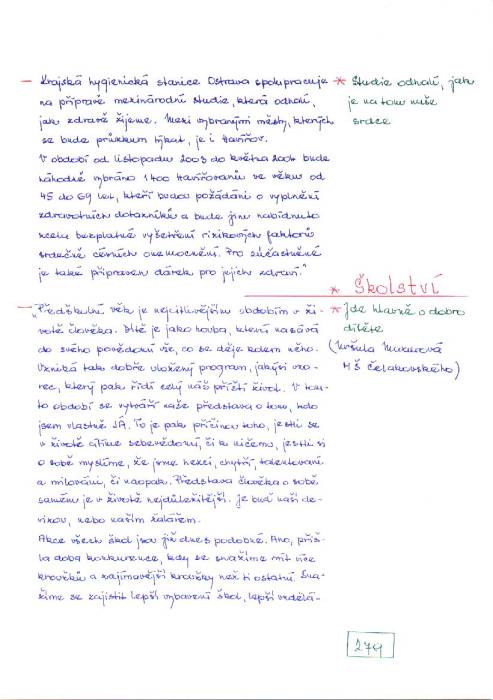 - Krajská hygienická stanice Ostrava spolupracuje
na přípravě mezinárodní studie, která odhalí,
jak zdravě žijeme. Mezi vybranými městy, kterých
se bude průzkum týkat, je i Havířov.
V období od listopadu 2003 do května 2004 bude
náhodně vybráno 1400 Havířovanů ve věku od
45 do 69 let, kteří budou požádáni o vyplnění
zdravotních dotazníků a bude jim nabídnuto
zcela bezplatné vyšetření rizikových faktorů
srdečně cévních onemocnění. Pro zúčastněné
je také připraven dárek pro jejich zdraví."
* Studie odhalí, jak
je na tom naše
srdce
* Školství
- "Předškolní věk je nejcitlivějším obdobím v ži-
votě člověka. Dítě je jako houba, která nasává
do svého povědomí vše, co se děje kolem něho.
Vzniká tak dobře uložený program, jakýsi vzo-
rec, který pak řídí celý náš příští život. V tom-
to období se vytváří naše představa o tom, kdo
jsem vlastně JÁ. To je pak příčinou toho, jestli se
v životě cítíme sebevědomí, či k ničemu, jestli si
o sobě myslíme, že jsme hezcí, chytří, talentovaní
a milováni, či naopak. Představa člověka o sobě
samém je v životě nejdůležitější. Je buď naší de-
vizou, nebo naším žalářem.
Akce všech škol jsou již dnes podobné. Ano, přiš-
la doba konkurence, kdy se snažíme mít více
kroužků a zajímavější kroužky než ti ostatní. Sna-
žíme se zajistit lepší vybavení škol, lepší vzdělá-
* Jde hlavně o dobro
dítěte
MŠ Čelakovského)
279